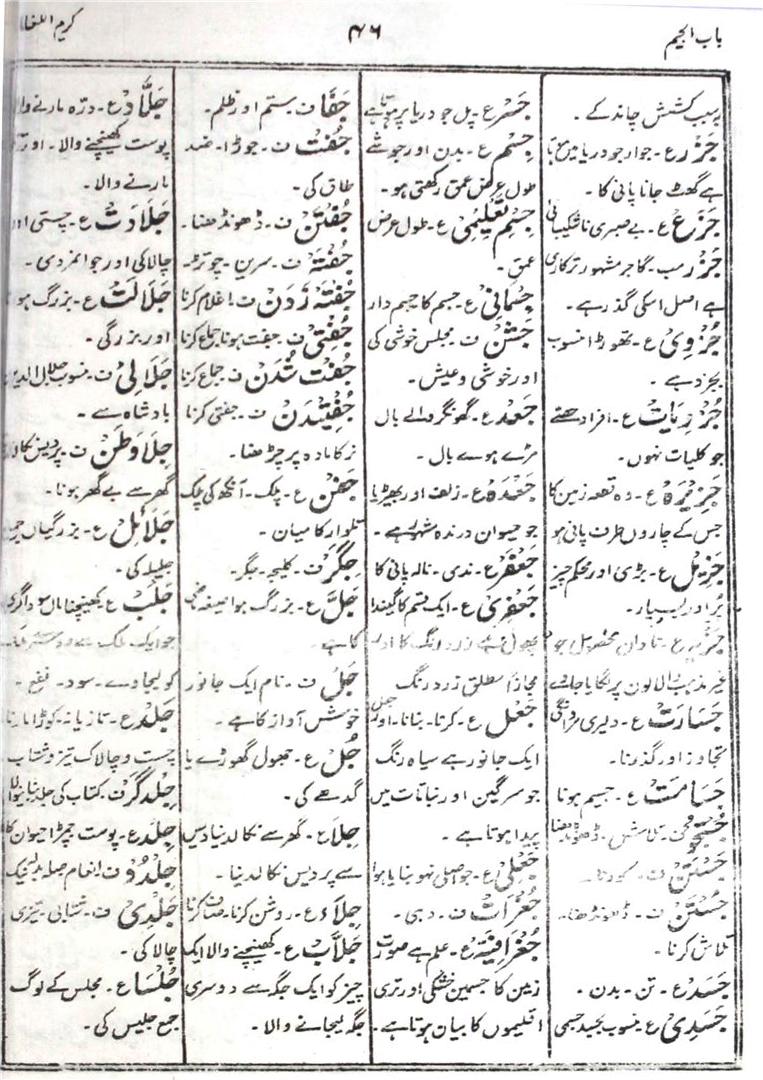 باب الجیم
۴۶
کریم اللغات
بسبب کشش چاند کے ۔
جَزْر ع ۔ جوار جو دریا میں
ہے گھٹ جانا پانی کا ۔
جَزَع ع ۔ بے صبری ناشکیبائی
جَزَر مب ۔ گاجر مشہور ترکاری
ہے اصل اسکی گذر ہے ۔
جُزْوِی ع ۔ تھوڑا منسوب
بجزد ہے ۔
جُزْئیات ع ۔ افراد حصے
جو کلیات نہوں ۔
جَزِیْرَہ ع ۔ وہ قطعہ زمین کا
جس کے چاروں طرف پانی ہو
جَزِیْل ع ۔ بڑی اور محکم چیز
بڑا اور بسیار ۔
ع ۔ تاوان محصول جو
غیر مذہب والوں پر لگایا جاے
جَسَارَت ع ۔ دلیری مردانگی
تجاوز اور گذرنا ۔
جَسَامَت ع ۔ جسیم ہونا
جُسْتُجُو ف ۔ تلاش ۔ ڈھونڈھنا
جَسْتَن ف ۔ کودنا ۔
جُسْتَن ف ۔ ڈھونڈھنا ۔
تلاش کرنا ۔
جَسَد ع ۔ تن ۔ بدن ۔
جَسَدِی ع ۔ منسوب بجسد جسمی
جَسْر ع ۔ پل جو دریا پر ہوتا ہے
جِسْم ع ۔ بدن اور جو شے
طول عرض عمق رکھتی ہو ۔
جِسْم تَعْلِیْمِی ع ۔ طول عرض
عمق ۔
جِسْمَانِی ع ۔ جسم کا جسم دار
جَشْن ف ۔ مجلس خوشی کی
اور خوشی و عیش ۔
جَعْد ع ۔ گھونگر والے بال
مڑے ہوے بال ۔
جَعْدَہ ع ۔ زلف اور بھیڑیا
جو حیوان درندہ مشہور ہے ۔
جَعْفَر ع ۔ ندی ۔ نالہ پانی کا
جَعْفَرِی ع ۔ ایک قسم کا گیندا
پھول ہے زرد رنگ کا اور
مجازاً مطلق زرد رنگ
جَعْل ع ۔ کرنا ۔ بنانا ۔ اور جُعَل
ایک جانور ہے سیاہ رنگ
جو سرگین اور نباتات میں
پیدا ہوتا ہے ۔
جَعْلِی ع ۔ جو اصلی نہو بنایا ہوا
جُغْرَات ف ۔ دہی ۔
جُغْرَافِیَہ ع ۔ علم ہے صورت
زمین کا جسمین خشکی اور تری
اقلیموں کا بیان ہوتا ہے ۔
جَفَا ف ۔ ستم اور ظلم ۔
جُفْت ف ۔ جوڑا ۔ ضد
طاق کی ۔
جُفْتَن ف ۔ ڈھونڈھنا ۔
جُفْتَہ ف ۔ سرین ۔ چوتڑ ۔
جُفْتَہ زَدَن ف ۔ اغلام کرنا
جُفْتِی ف ۔ جفت ہونا جماع کرنا
جُفْت شُدَن ف ۔ جماع کرنا
جُفْتِیْدَن ف ۔ جفتی کرنا
نر کا مادہ پر چڑھنا ۔
جَفْن ع ۔ پلک ۔ آنکھ کی پلک
تلوار کا میان ۔
جِگَر ف ۔ کلیجہ ۔ جگر ۔
جَلَّ ع ۔ بزرگ ہوا صیغہ
کا ہے ۔
جَل ف ۔ نام ایک جانور
خوش آواز کا ہے ۔
جُل ع ۔ جھول گھوڑے یا
گدھے کی ۔
جِلا ع ۔ گھر سے نکالدینا دیس
سے پردیس نکالدینا ۔
جِلاَء ع ۔ روشن کرنا ۔ صاف کرنا
جَلَّاب ع ۔ کھینچنے والا ایک
چیز کو ایک جگہ سے دوسری
جگہ لیجانے والا ۔
جَلَّاد ع ۔ درّہ مارنے والا
پوست کھینچنے والا ۔
مارنے والا ۔
جَلادَت ع ۔ چستی اور
چالاکی اور جوانمردی ۔
جَلالَت ع ۔ بزرگ ہونا
اور بزرگی ۔
جَلالِی ف ۔ منسوب جلال الدین
بادشاہ سے ۔
جِلاوَطَن ف ۔ پردیس
گھر سے بے گھر ہونا ۔
جَلائِل ع ۔ بزرگیاں جمع
جلیلہ کی ۔
جَلْب ع ۔ کھینچنا مال سوداگری
جو ایک ملک سے دوسرے
کو لیجاوے ۔ سود ۔ نفع ۔
جَلْد ع ۔ تازیانہ ۔ کوڑا مارنا
چست و چالاک تیز و شتاب
جِلْدگَر ف ۔ کتاب کی جلد بنانیوالا
جِلْد ع ۔ پوست چمڑا حیوان کا
جِلْدُو ف ۔ انعام صلہ بدلہ نیک
جَلْدِی ف ۔ شتابی ۔ تیزی
چالاکی ۔
جُلَسَا ع ۔ مجلس کے لوگ
جمع جلیس کی ۔